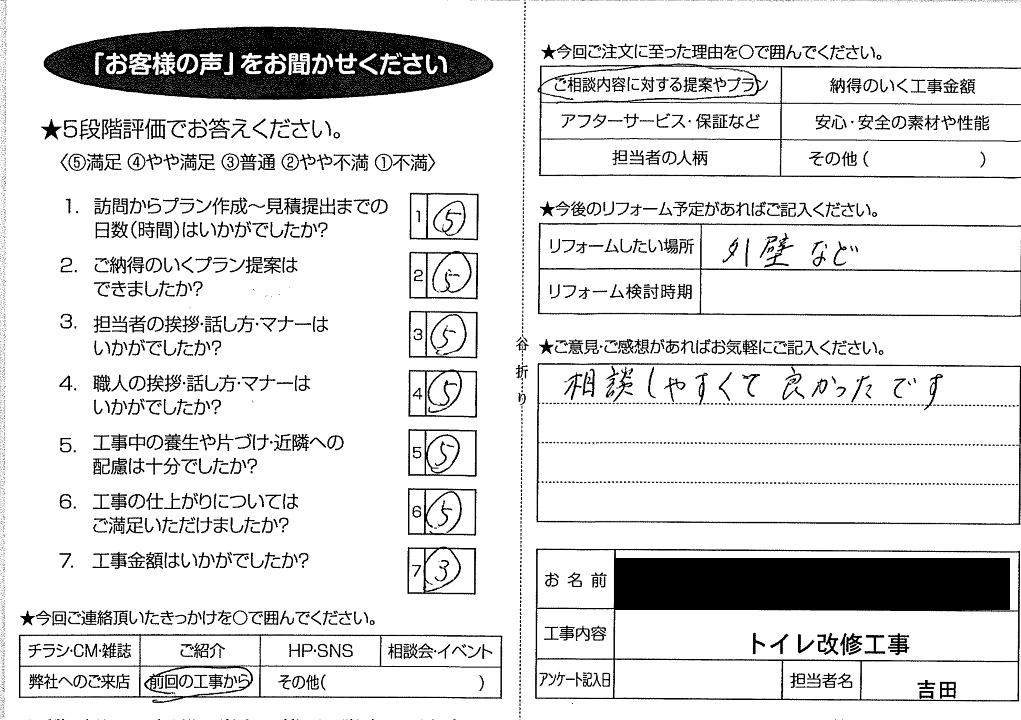 「お客様の声」をお聞かせください
★5段階評価でお答えください。
〈⑤満足 ④やや満足 ③普通 ②やや不満 ①不満〉
1. 訪問からプラン作成～見積提出までの
日数(時間)はいかがでしたか?
1 5
2. ご納得のいくプラン提案は
できましたか?
2 5
3. 担当者の挨拶・話し方・マナーは
いかがでしたか?
3 5
4. 職人の挨拶・話し方・マナーは
いかがでしたか?
4 5
5. 工事中の養生や片づけ・近隣への
配慮は十分でしたか?
5 5
6. 工事の仕上がりについては
ご満足いただけましたか?
6 5
7. 工事金額はいかがでしたか?
7 3
★今回ご連絡頂いたきっかけを○で囲んでください。
チラシ・CM・雑誌 ご紹介 HP・SNS 相談会・イベント
弊社へのご来店 前回の工事から その他( )
谷折り
★今回ご注文に至った理由を○で囲んでください。
ご相談内容に対する提案やプラン 納得のいく工事金額
アフターサービス・保証など 安心・安全の素材や性能
担当者の人柄 その他( )
★今後のリフォーム予定があればご記入ください。
リフォームしたい場所 外壁 など
リフォーム検討時期
★ご意見・ご感想があればお気軽にご記入ください。
相談しやすくて良かったです
お名前
工事内容 トイレ改修工事
アンケート記入日 担当者名 吉田